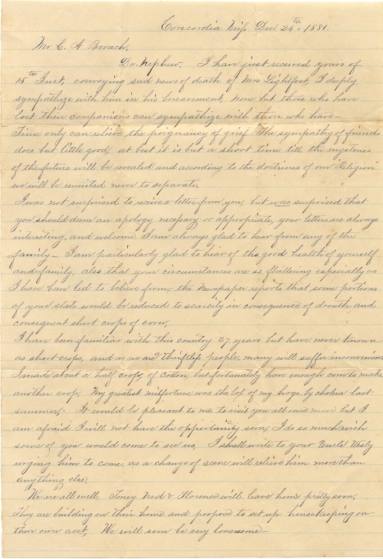 Concordia Miss. Dec 24th, 1881.
Mr C. A. Broach,
Dr. Nephew. I have just received yours of
15th Inst, conveying sad news of death of Mrs Lightfoot, I deeply
sympathize with him in his bereavement, none but those who have
lost their companions can sympathize with those who have—
Time only can relieve the poignancy of grief. The sympathy of friends
does but little good at but it is but a short time till the mysteries
of the future will be revealed and according to the doctrines of our Religion
we will be reunited never to separate.
I was not surprised to receive letter from you, but was surprised that
you should deem an apology necessary or appropriate, your letters are always
interesting, and welcome. I am always glad to hear from any of the
family— I am particularly glad to hear of the good health of yourself
and family, also that your circumstances are so flattering especially as
I have been led to believe from the Newspaper reports that some portions
of your state would be reduced to scarcity in consequence of drouth and
consequent short crops of corn,
I have been familiar with this country 37 years but have never known
as short crops, and as we are thriftless people many will suffer inconvenience
I made about a half crop of cotton but fortunately have enough corn to make
another crop. My greatest misfortune was the loss of my hogs by cholera last
summer. It would be pleasant to me to visit you all once more but I
am afraid I will not have the opportunity soon, I do so much wish
some of you would come to see us. I shall write to your Uncle Wesly
urging him to come, as a change of scene will relieve him more than
anything else.
We are all well. Toney Need & Florence will leave home pretty soon,
They are building on their home and propose to set up housekeeping on
their own acct, We will soon be very lonesome—